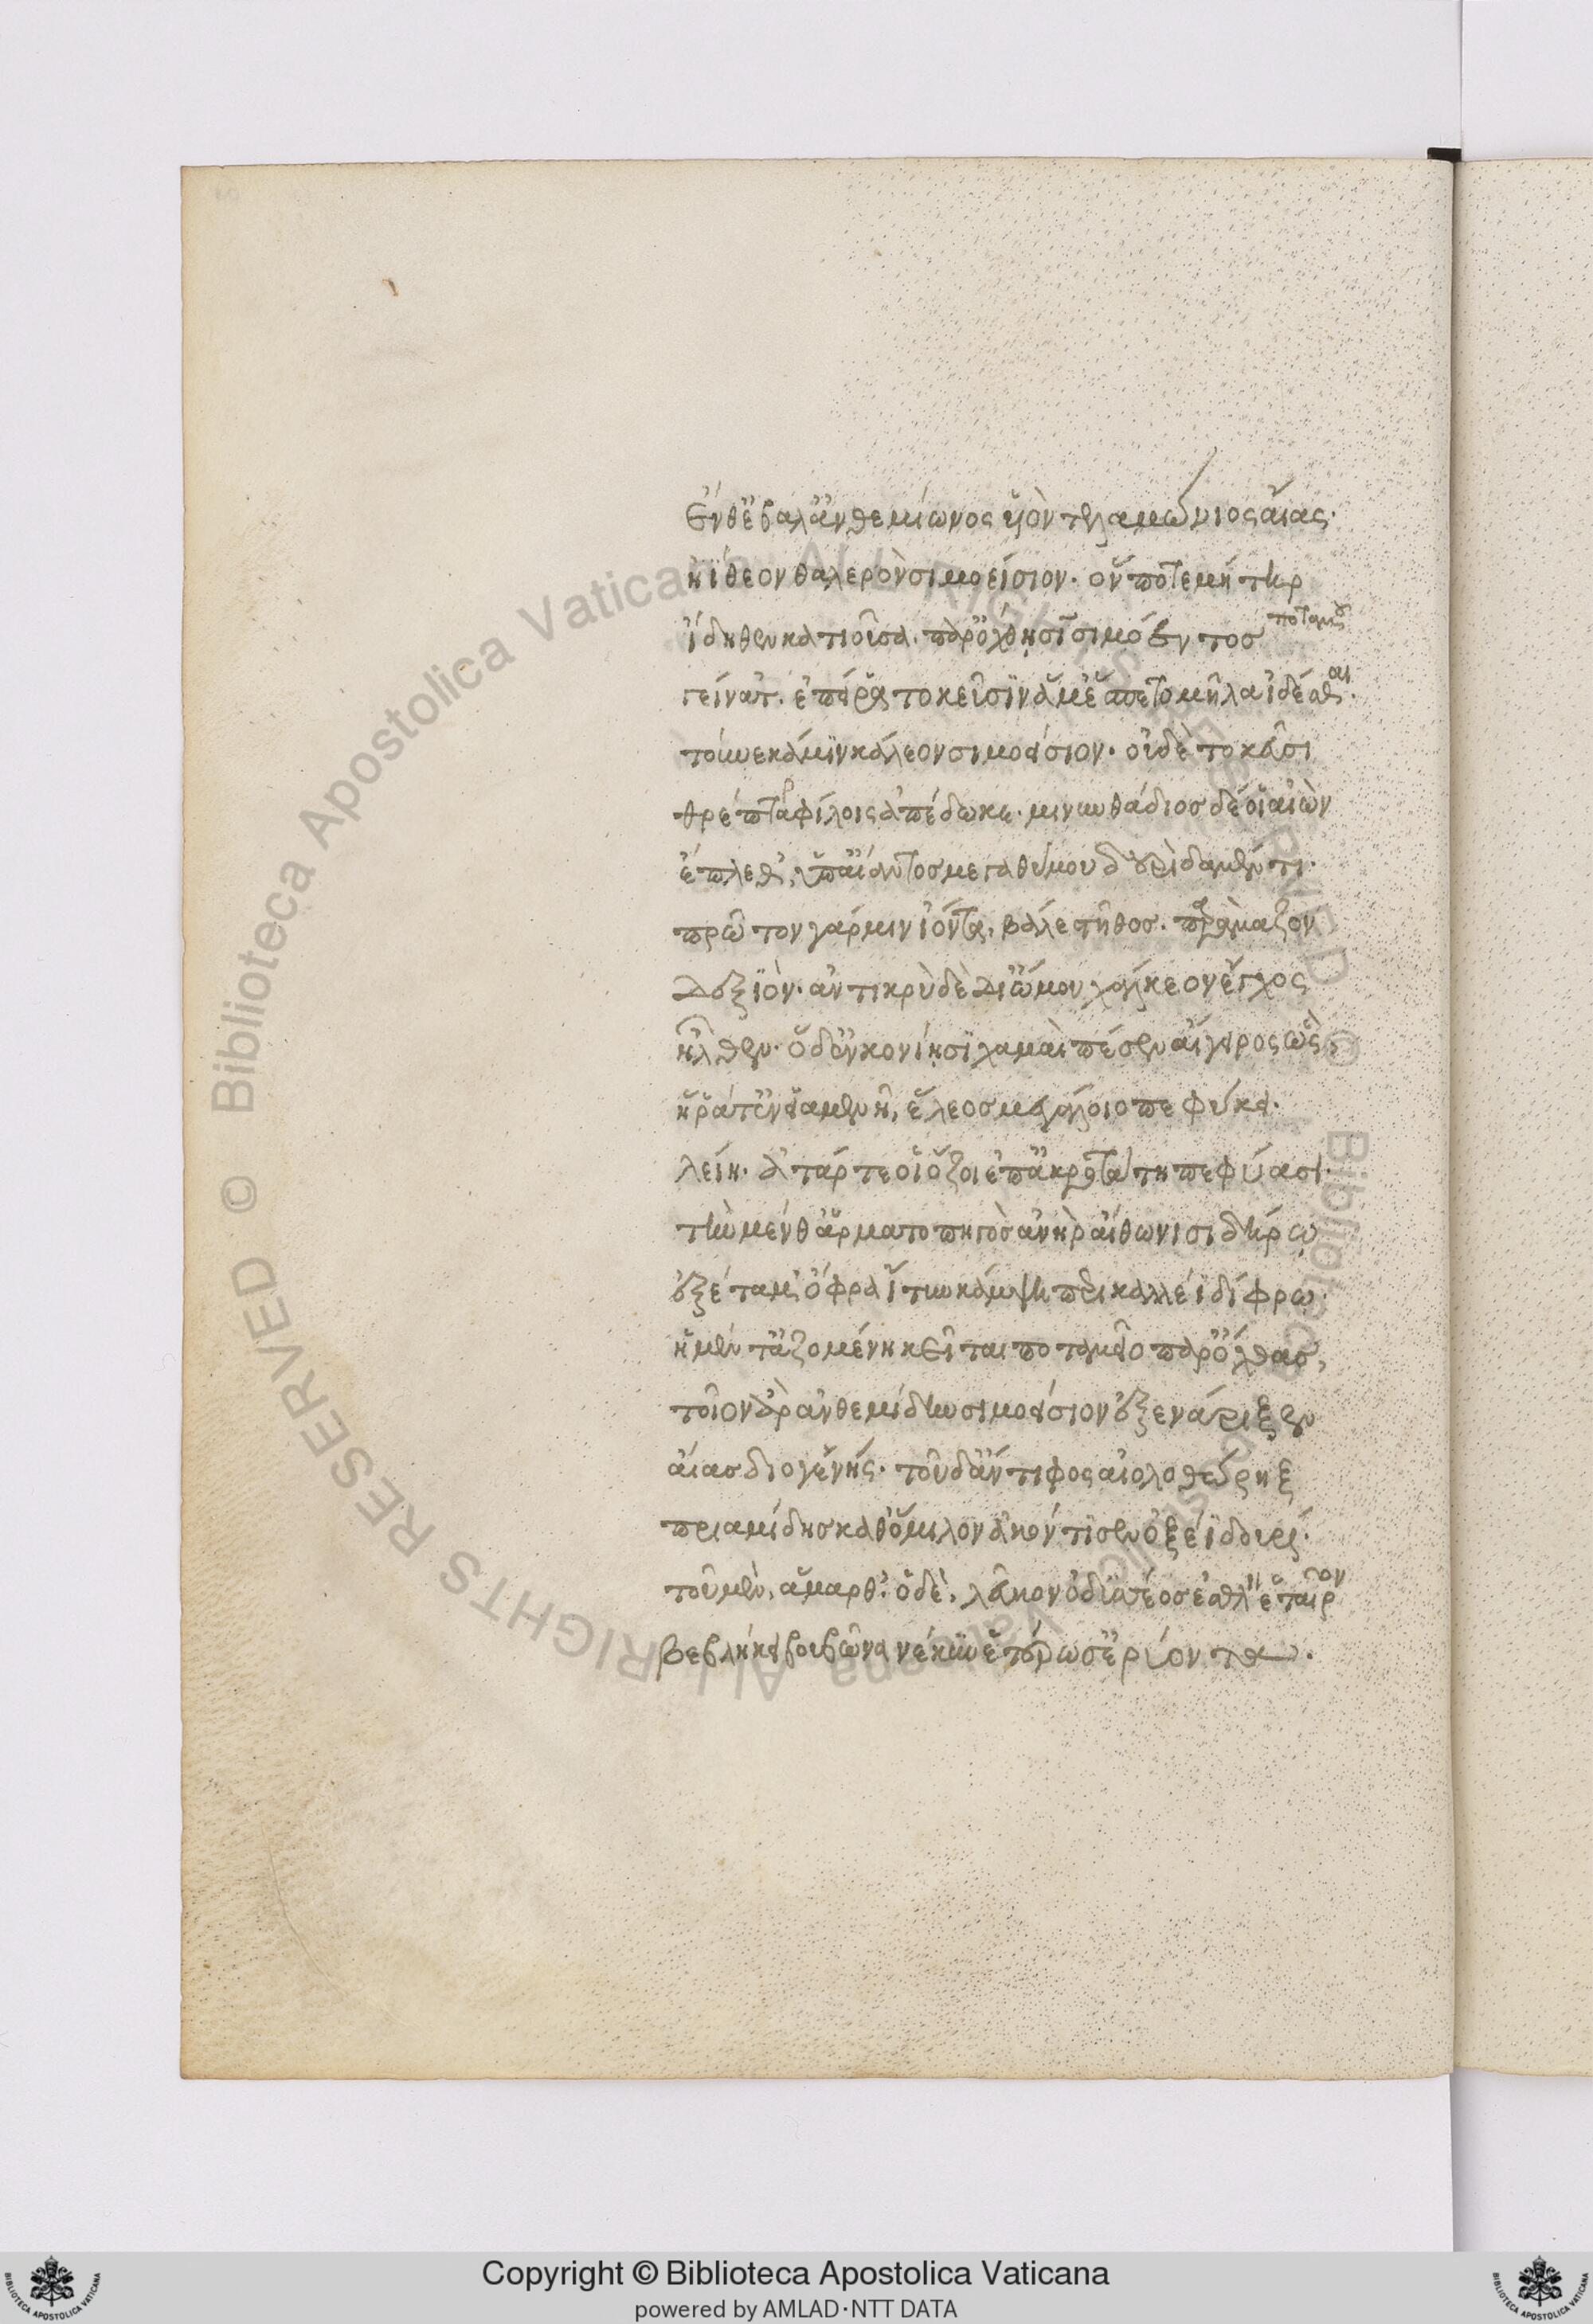 ἔνθ' ἔβαλ' ἀνθεμίωνος υἱὸν τελαμώνιος αἴας·
ἠΐθεον θαλερὸν σιμοείσιον· ὅν ποτε μήτηρ
ἴδηθεν κατιοῦσα. παρ' ὄχθησι σιμόεντος ποταμοῦ
γείνατ'. ἐπεί ῥα τοκεῦσιν ἅμ' ἕσπετο μῆλα ἰδέσθαι.
τοὔνεκά μιν κάλεον σιμοείσιον· οὐδὲ τοκεῦσι
θρέπτρα φίλοις ἀπέδωκε· μινυνθάδιος δέ οἱ αἰὼν
ἔπλεθ', ὑπ' αἴαντος μεγαθύμου δουρὶ δαμέντι·
πρῶτον γάρ μιν ἰόντα, βάλε στῆθος. παρὰ μαζὸν
δεξιὸν· ἀντικρὺ δὲ δι' ὤμου χάλκεον ἔγχος
ἦλθεν· ὁ δ' ἐν κονίησι χαμαὶ πέσεν αἴγειρος ὥς,
ἥ ῥά τ' ἐν εἱαμενῇ, ἕλεος μεγάλοιο πεφύκει·
λείη· ἀτάρ τέ οἱ ὄζοι ἐπ' ἀκροτάτη πεφύασι·
τὴν μέν θ' ἁρματοπηγὸς ἀνὴρ αἴθωνι σιδήρῳ
ἐξέταμ' ὄφρα ἴτυν κάμψη περικαλλέϊ δίφρῳ·
ἡ μέν τ' ἀζομένη κεῖται ποταμοῖο παρ' ὄχθας,
τοῖον ἄρ' ἀνθεμίδην σιμοείσιον ἐξενάριξεν
αἴας διογενής· τοῦ δ' ἄντιφος αἰολοθώρηξ
πριαμίδης καθ' ὅμιλον ἀκόντισεν ὀξέϊ δουρί·
τοῦ μὲν, ἅμαρθ'· ὁ δὲ, λεῦκον ὀδυσσέος ἐσθλὸν ἑταῖρον
βεβλήκει βουβῶνα νέκυν ἑτέρωσ' ἐρύοντα·
Copyright © Biblioteca Apostolica Vaticana
powered by AMLAD·NTT DATA